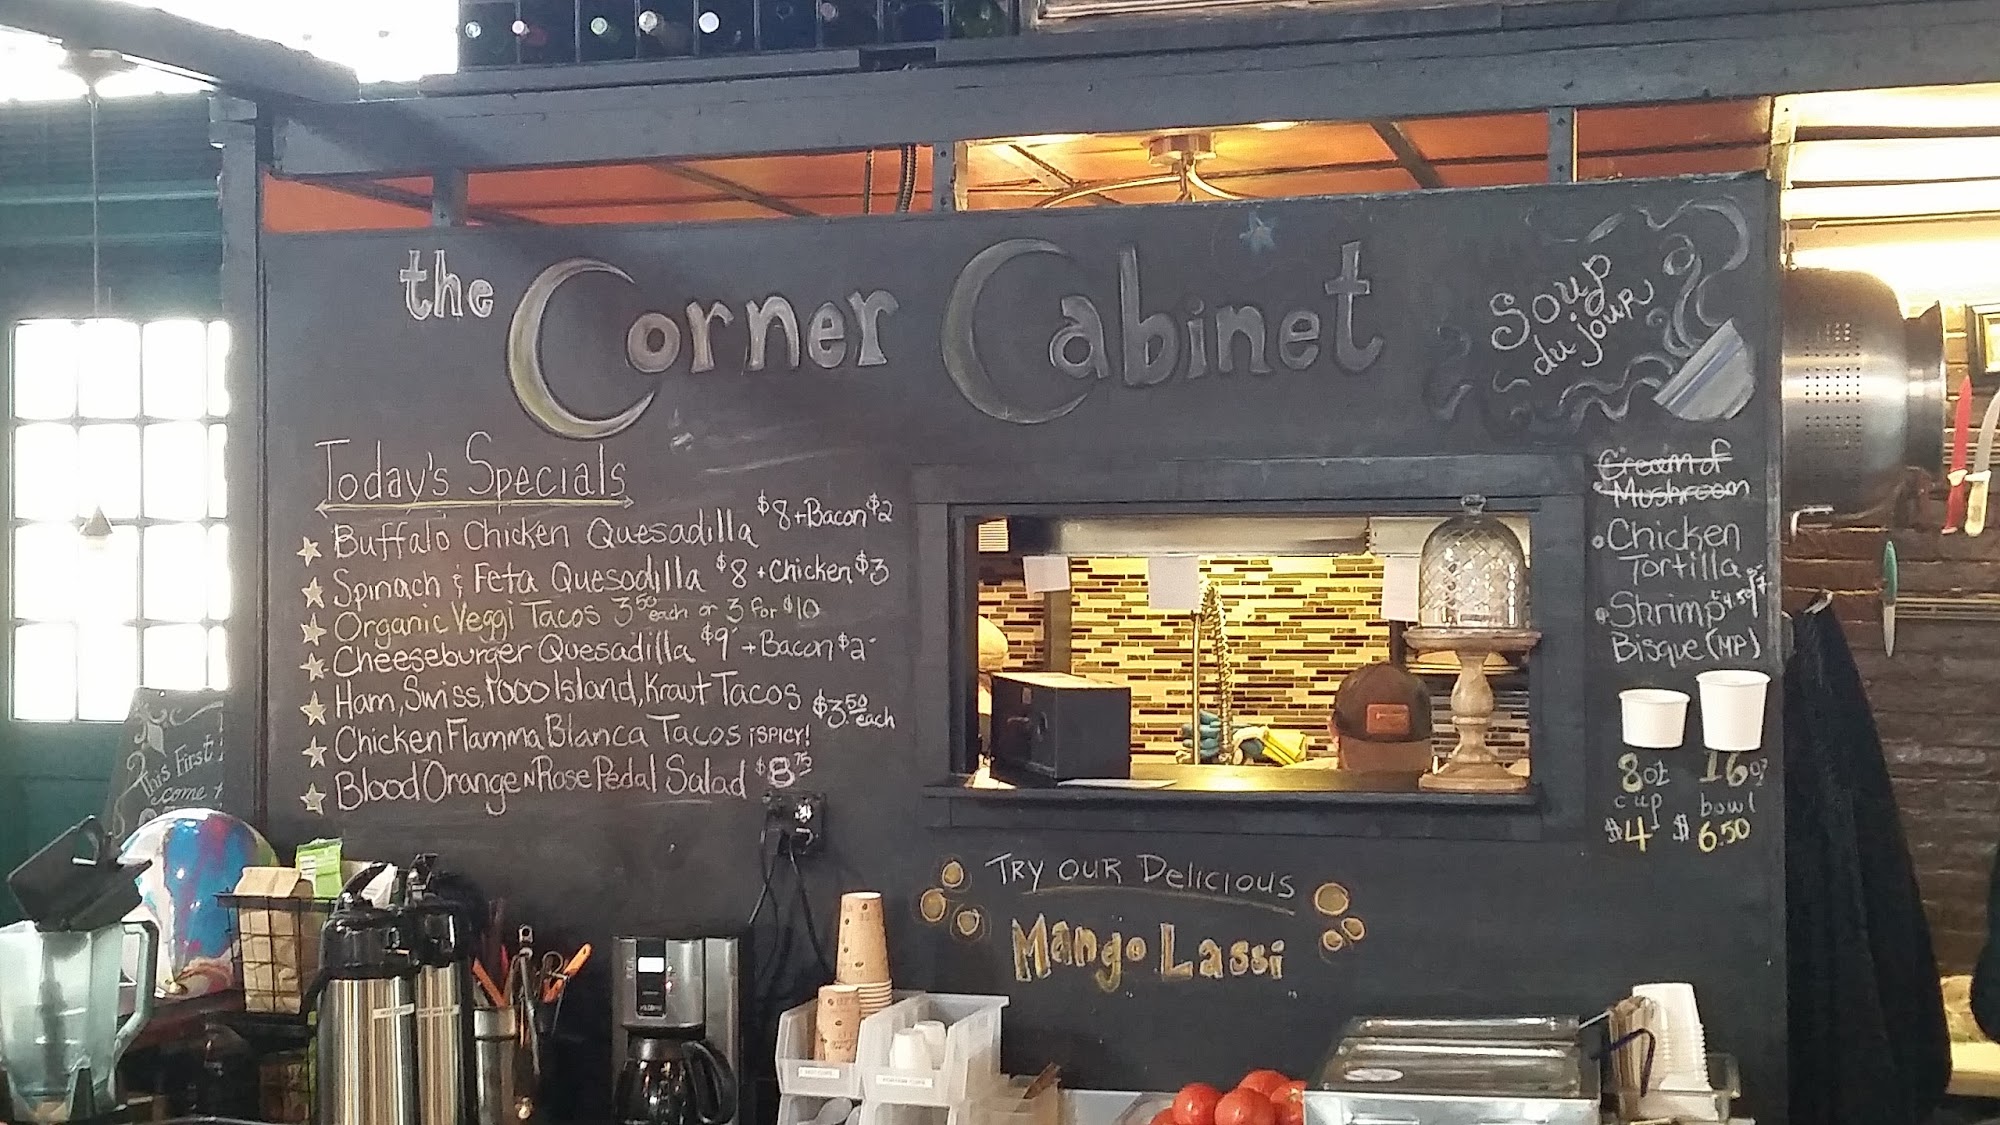 the Corner Cabinet
Soup
du jour
Today's Specials
Buffalo Chicken Quesadilla $8 + Bacon $2
Spinach & Feta Quesadilla $8 + Chicken $3
Organic Veggi Tacos 3.50 each or 3 for $10
Cheeseburger Quesadilla $9 + Bacon $2
Ham, Swiss, 1000 Island, Kraut Tacos $3.50 each
Chicken Flamma Blanca Tacos ¡SPICY!
Blood Orange N Rose Pedal Salad $8.75
Cream of
Mushroom
Chicken
Tortilla
Shrimp
Bisque (MP)
8oz 16oz
cup bowl
$4 $6.50
Try our Delicious
Mango Lassi
This First
come